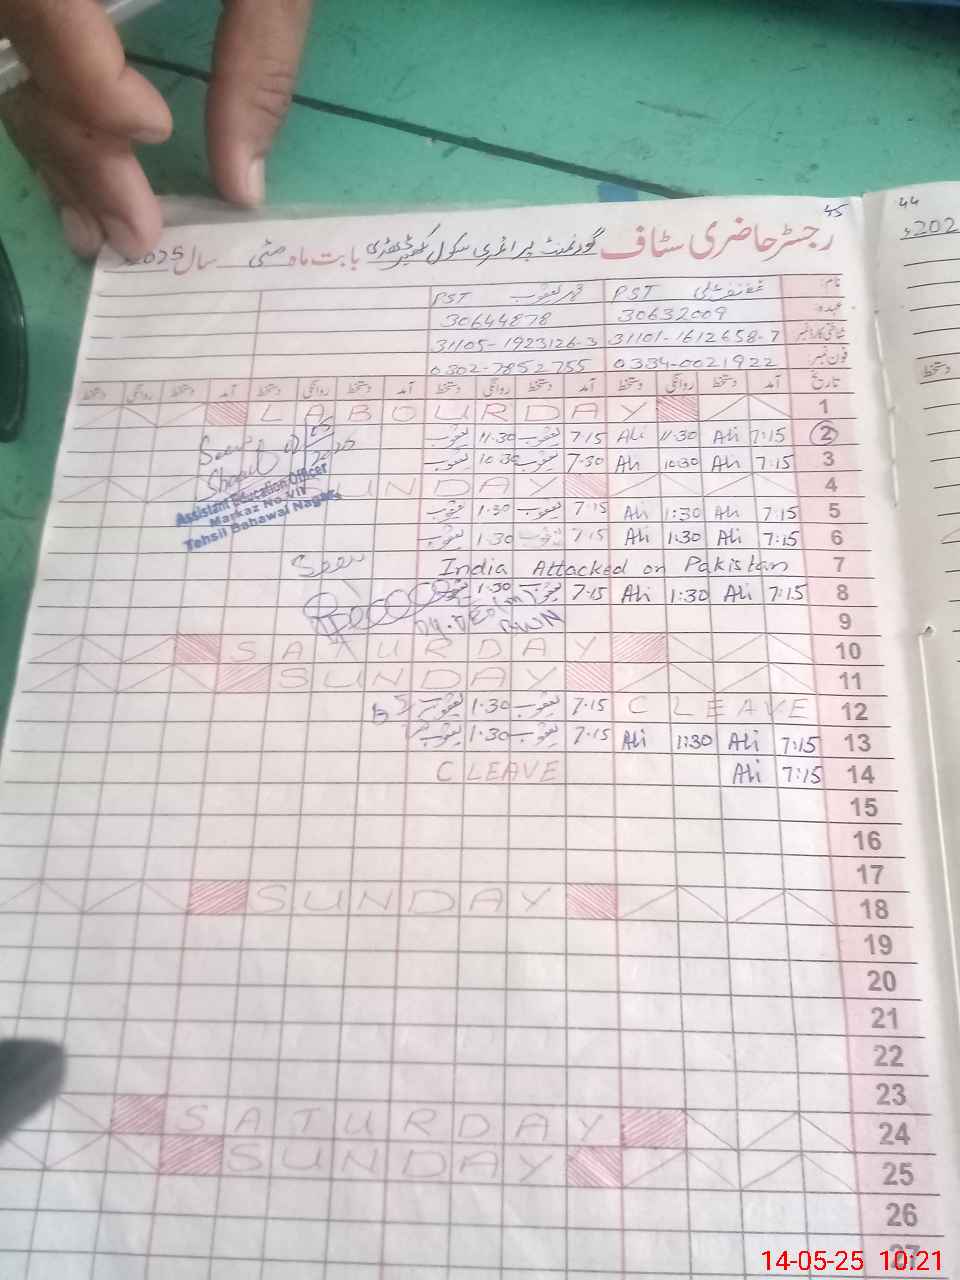 45
44
رجسٹر حاضری سٹاف گورنمنٹ پرائمری سکول بابت ماہ مئی سال 2025ء
202ء
نام: غضنفر علی PST محمد یعقوب PST
عہدہ: 30632009 30644878
شناختی کارڈ نمبر 31101-1612658-7 31105-1923126-3
فون نمبر: 0334-0021922 0302-7852755
تاریخ آمد دستخط روانگی دستخط آمد دستخط روانگی دستخط آمد دستخط روانگی دستخط
دستخط
1 LABOUR DAY
2 7:15 Ali 11:30 Ali 7:15 یعقوب 11.30 یعقوب
3 7:15 Ali 10:30 Ali 7-30 یعقوب 10.30 یعقوب
Seen
4 SUNDAY
Assistant Education Officer
Markaz No.VII
Tehsil Bahawal Nagar
5 7:15 Ali 1:30 Ali 7:15 یعقوب 1.30 یعقوب
6 7:15 Ali 1:30 Ali 7:15 یعقوب 1.30 یعقوب
7 India Attacked on Pakistan
Seen
8 7:15 Ali 1:30 Ali 7:15 یعقوب 1.30 یعقوب
Dy. DEO (M)
BWN
9
10 SATURDAY
11 SUNDAY
12 C LEAVE 7.15 یعقوب 1.30 یعقوب
13 7:15 Ali 1:30 Ali 7:15 یعقوب 1.30 یعقوب
14 7:15 Ali C LEAVE
15
16
17
18 SUNDAY
19
20
21
22
23
24 SATURDAY
25 SUNDAY
26
27
14-05-25 10:21